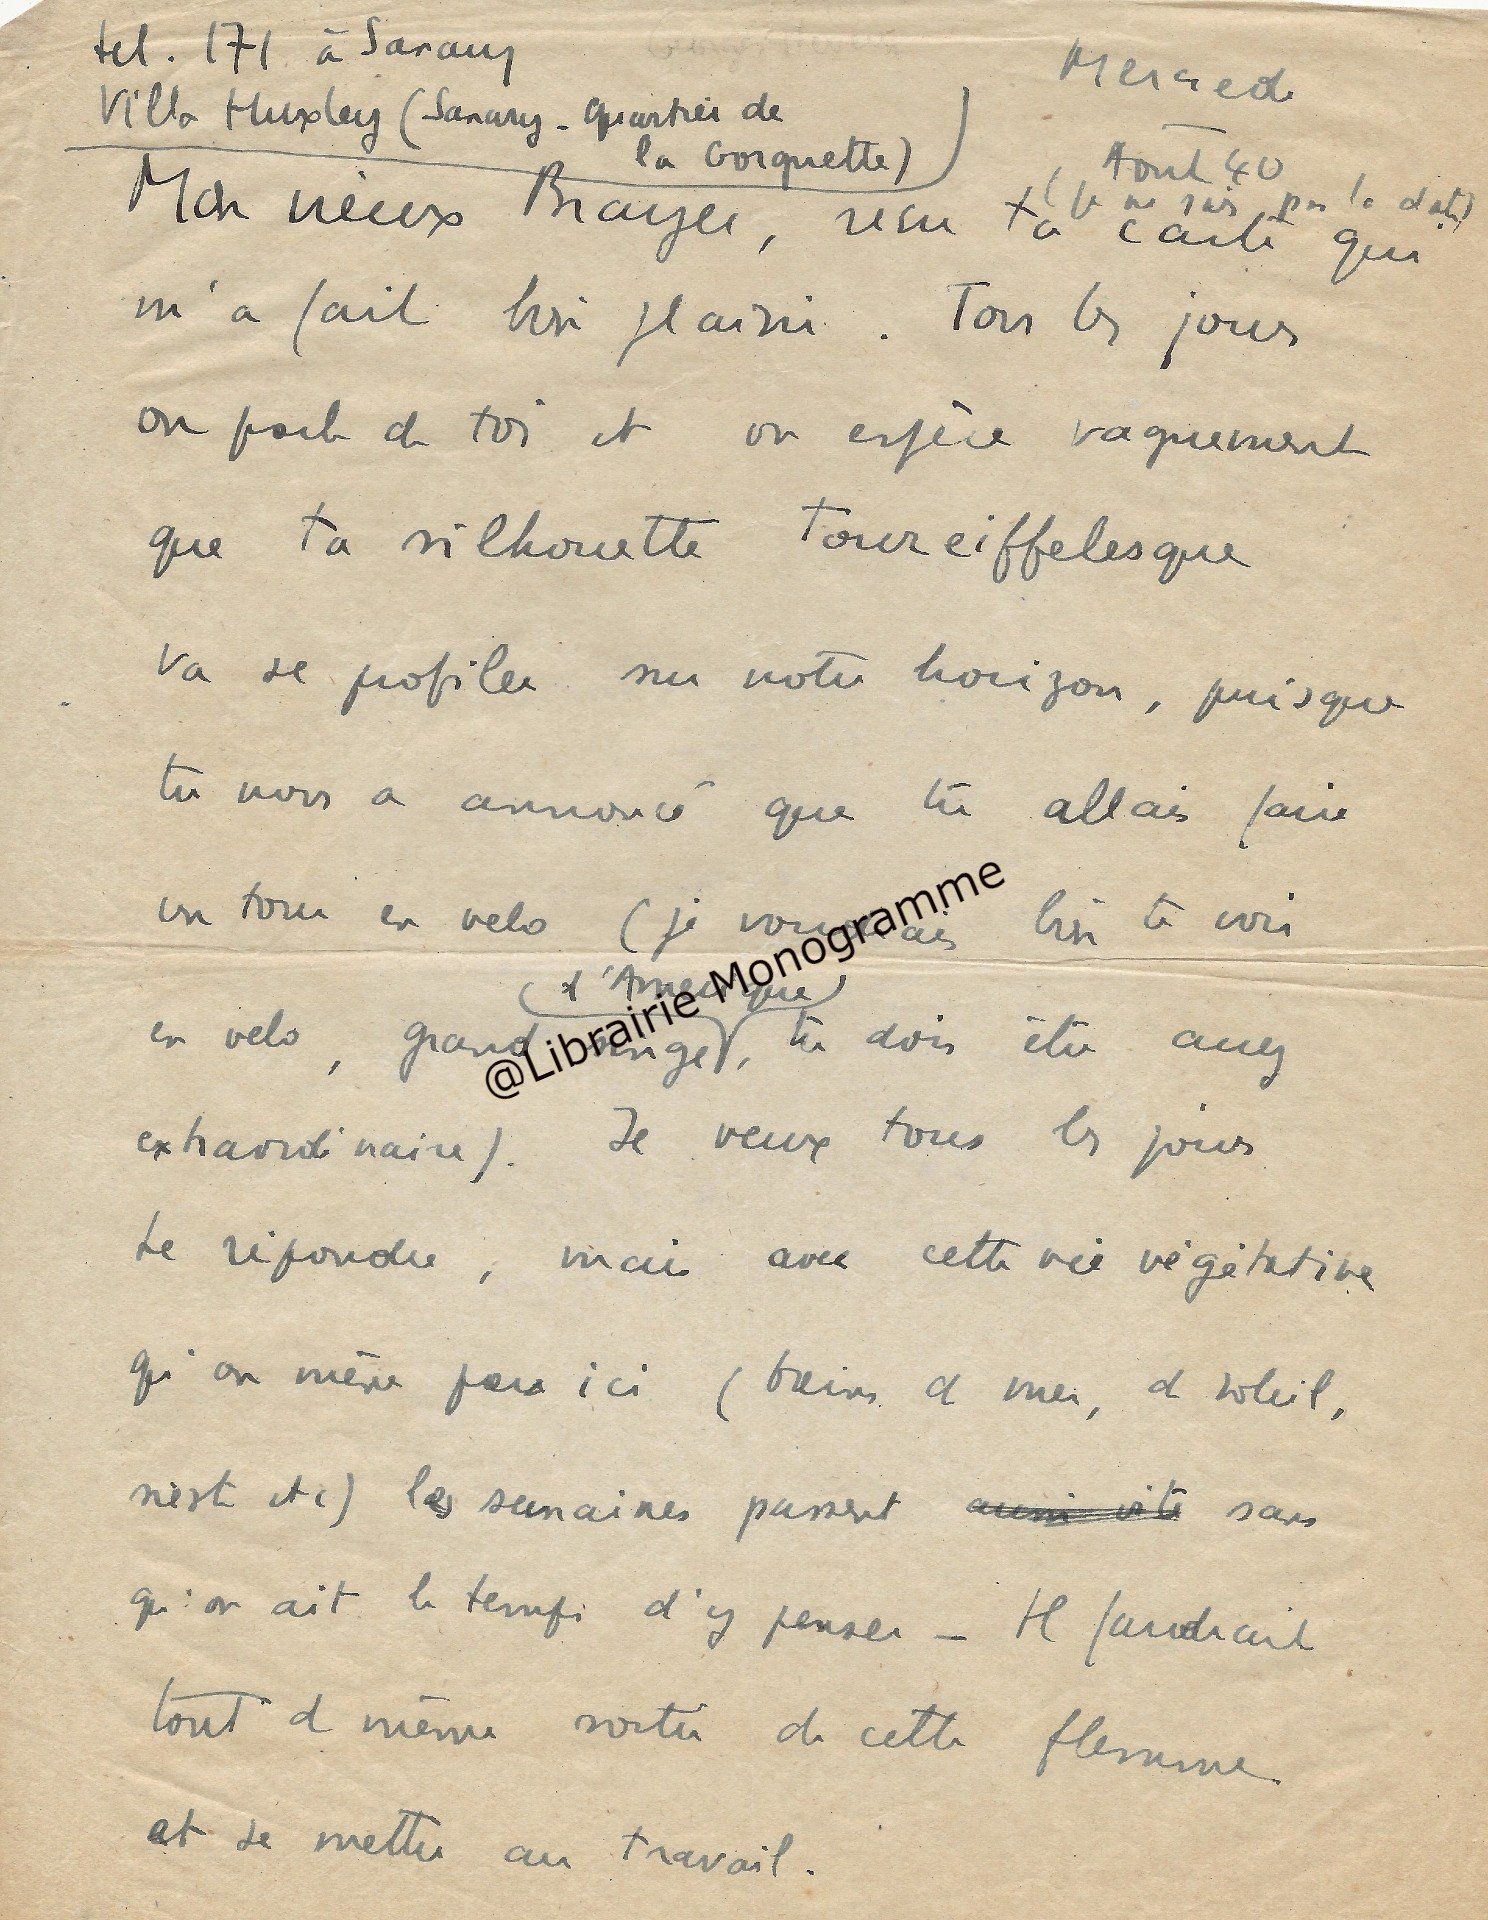 tel. 171 à Sanary
Villa Huxley (Sanary - Quartier de
la Gorguette)
Mercredi
Août 40
(je ne sais pas la date)
Mon vieux Brayer, reçu ta carte qui
m'a fait bien plaisir. Tous les jours
on parle de toi et on espère vaguement
que ta silhouette toureiffelesque
va se profiler sur notre horizon, puisque
tu nous a annoncé que tu allais faire
un tour en velo (je voudrais bien te voir
(d'Amerique)
en velo, grand singe, tu dois être assez
extraordinaire). Je veux tous les jours
te répondre, mais avec cette vie végétative
qu'on mène par ici (bains de mer, de soleil,
sieste etc) les semaines passent aussi vite sans
qu'on ait le temps d'y penser - Il faudrait
tout de même sortir de cette flemme
et se mettre au travail.
@Librairie Monogramme